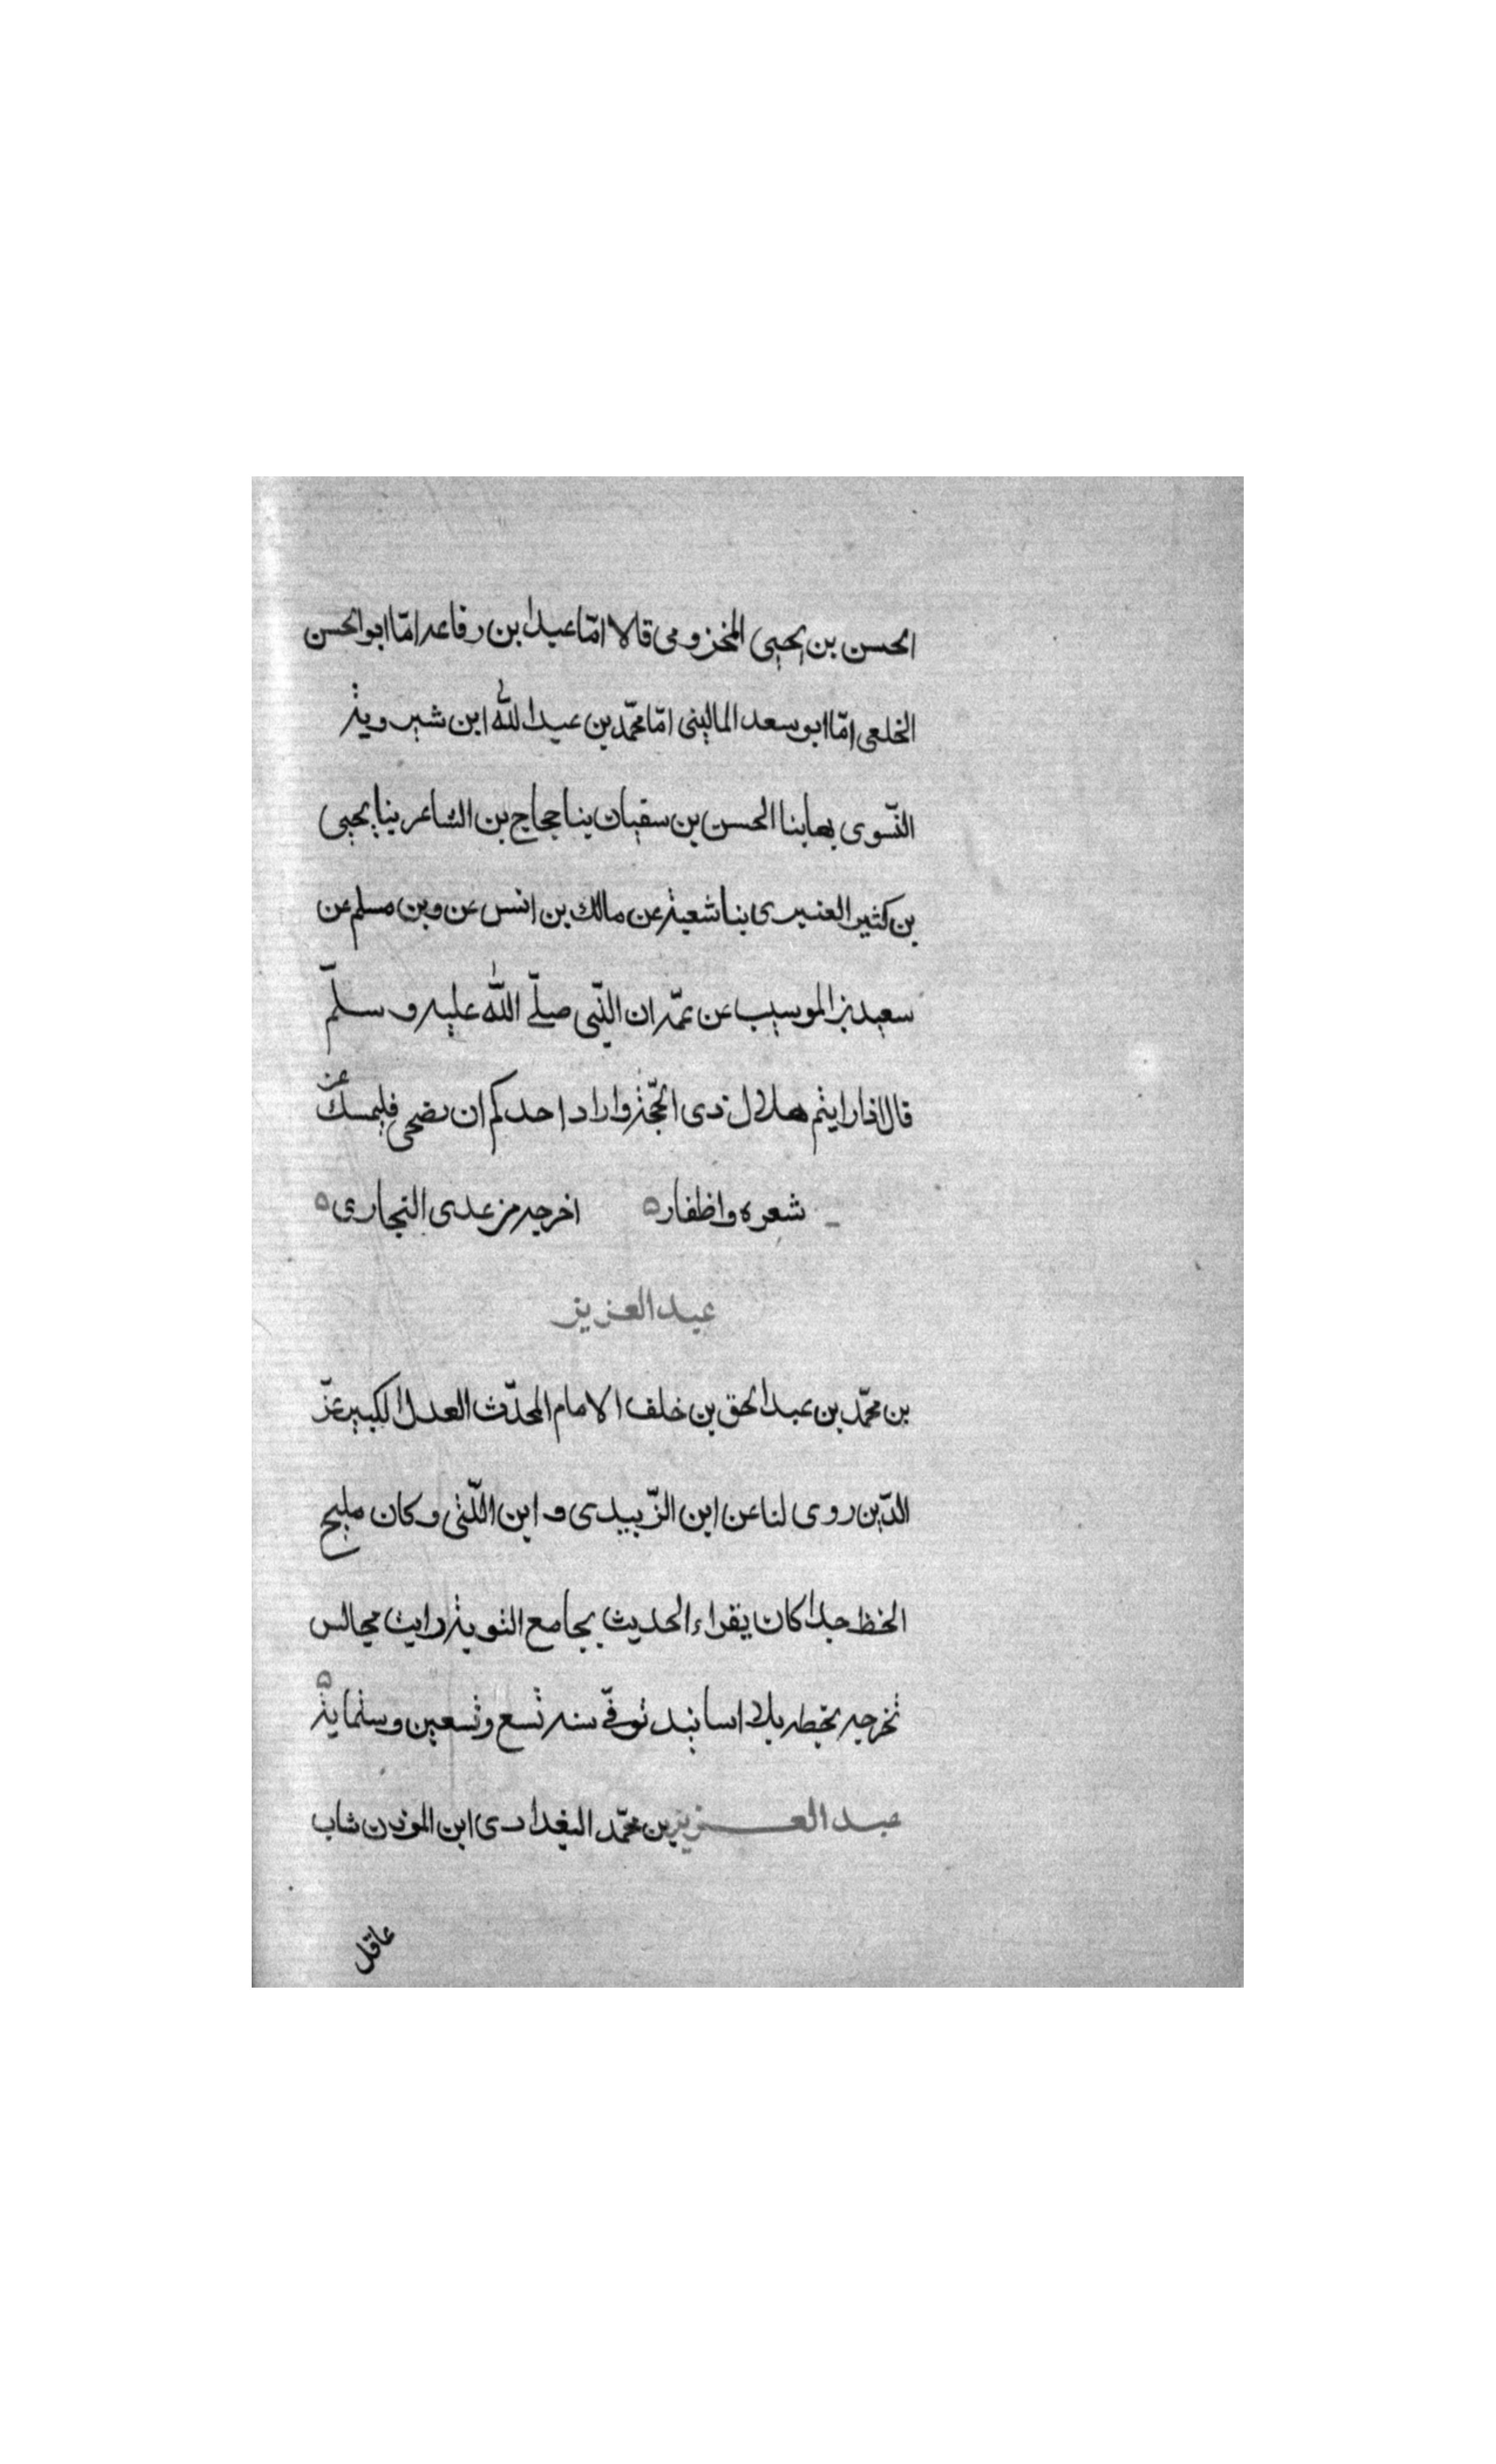 الحسن بن يحيى المخزومى قالا امّا عبدا بن رفاعه امّا ابو الحسن
الخلعى امّا ابو سعد المالينى امّا محمّد بن عبدالله ابن شيرويثه
النّسوى بها بنا الحسن بن سفيان بنا حجاج بن الشاعر بنا يحيى
بن كثير العنبرى بنا شعبة عن مالك بن انس عن وبن مسلم عن
سعيد بن الموسيب عن عمّه ان النّبى صلّى الله عليه وسلّم
قال اذا رايتم هلال ذى الحجّة واراد احدكم ان يضحى فليمسك عن
شعره واظفاره اخرجه من عدى النجارى ه
عبد العزيز
بن محمّد بن عبد الحق بن خلف الامام المحدّث العدل الكبير عزّ
الدّين روى لنا عن ابن الزّبيدى و ابن اللّتى وكان مليح
الخط جدا كان يقراء الحديث بجامع التوبة رايت مجالس
تخرجه بخطه بلا اسانيد توفّى سنه تسع وتسعين وستماية ه
عبد العزيز بن محمّد البغدادى ابن الموذن شاب
عاقل